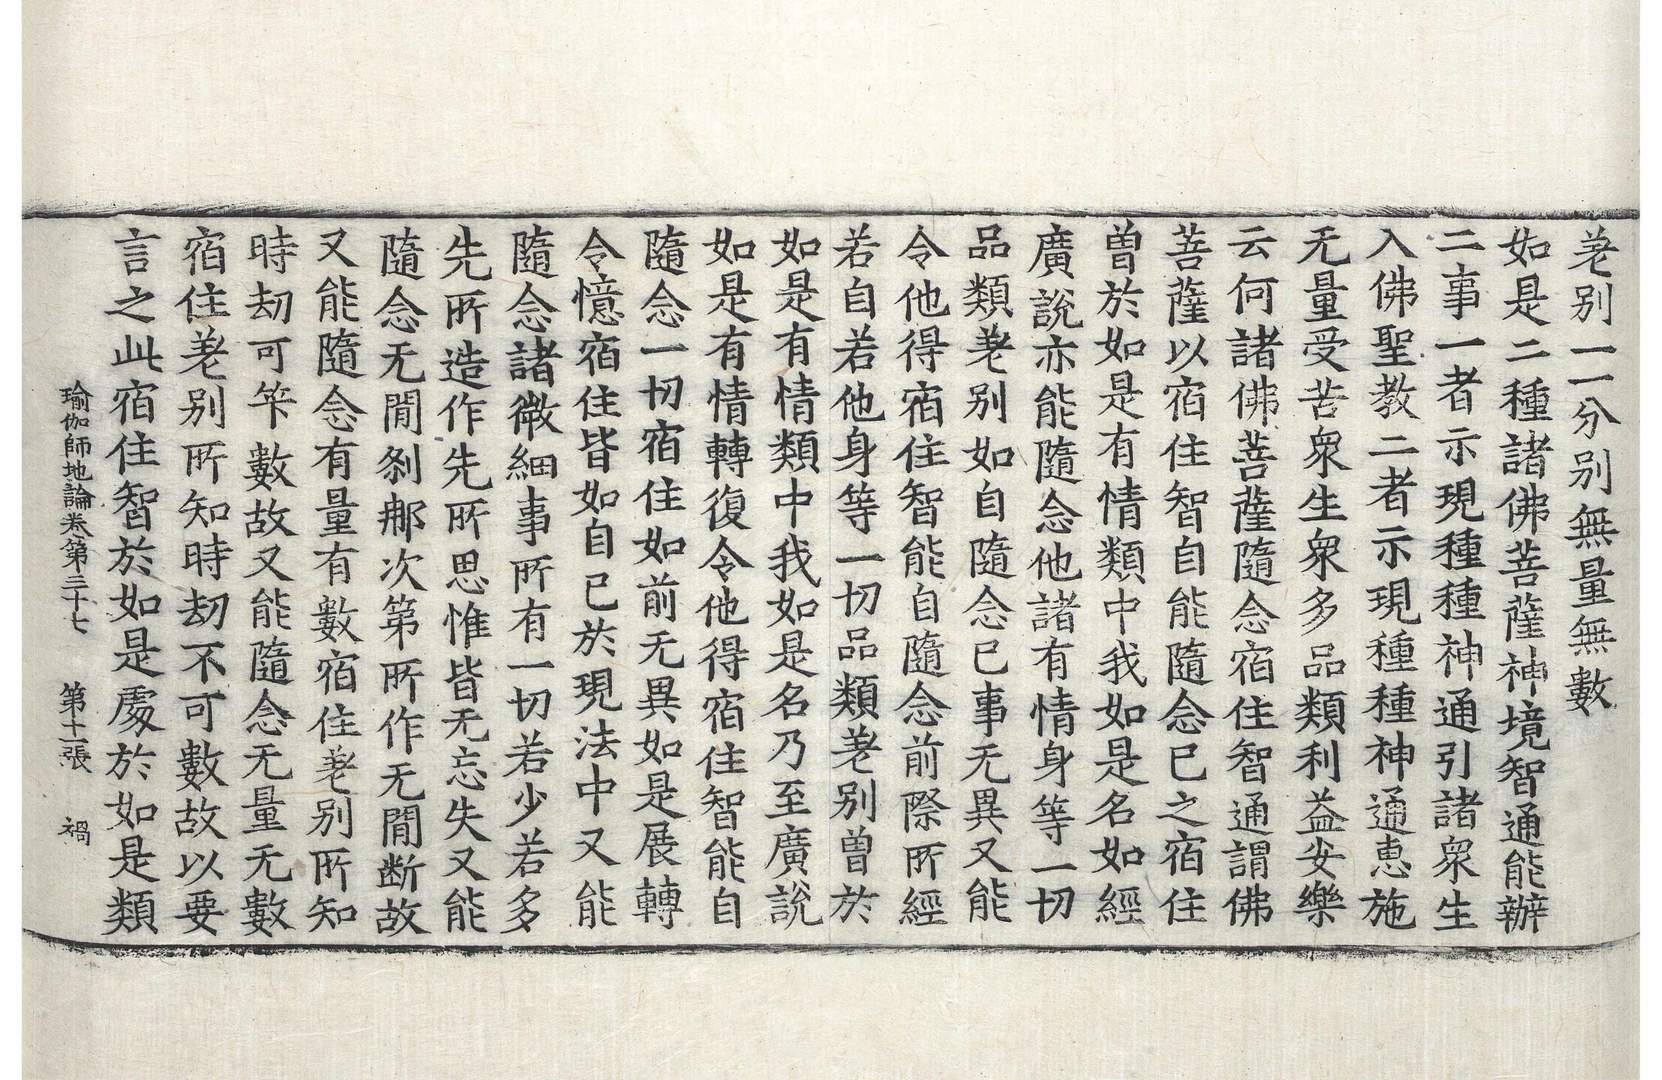 差別一一分別無量無數
如是二種諸佛菩薩神境智通能辦
二事一者示現種種神通引諸衆生
入佛聖教二者示現種種神通惠施
无量受苦衆生衆多品類利益安樂
云何諸佛菩薩隨念宿住智通謂佛
菩薩以宿住智自能隨念已之宿住
曾於如是有情類中我如是名如經
廣說亦能隨念他諸有情身等一切
品類差別如自隨念已事无異又能
令他得宿住智能自隨念前際所經
若自若他身等一切品類差別曾於
如是有情類中我如是名乃至廣說
如是有情轉復令他得宿住智能自
隨念一切宿住如前无異如是展轉
令憶宿住皆如自已於現法中又能
隨念諸微細事所有一切若少若多
先所造作先所思惟皆无忘失又能
隨念无間刹那次第所作无間断故
又能隨念有量有數宿住差別所知
時劫可筭數故又能隨念无量无數
宿住差別所知時劫不可數故以要
言之此宿住智於如是處於如是類
瑜伽師地論卷第三十七 第十一張 禍